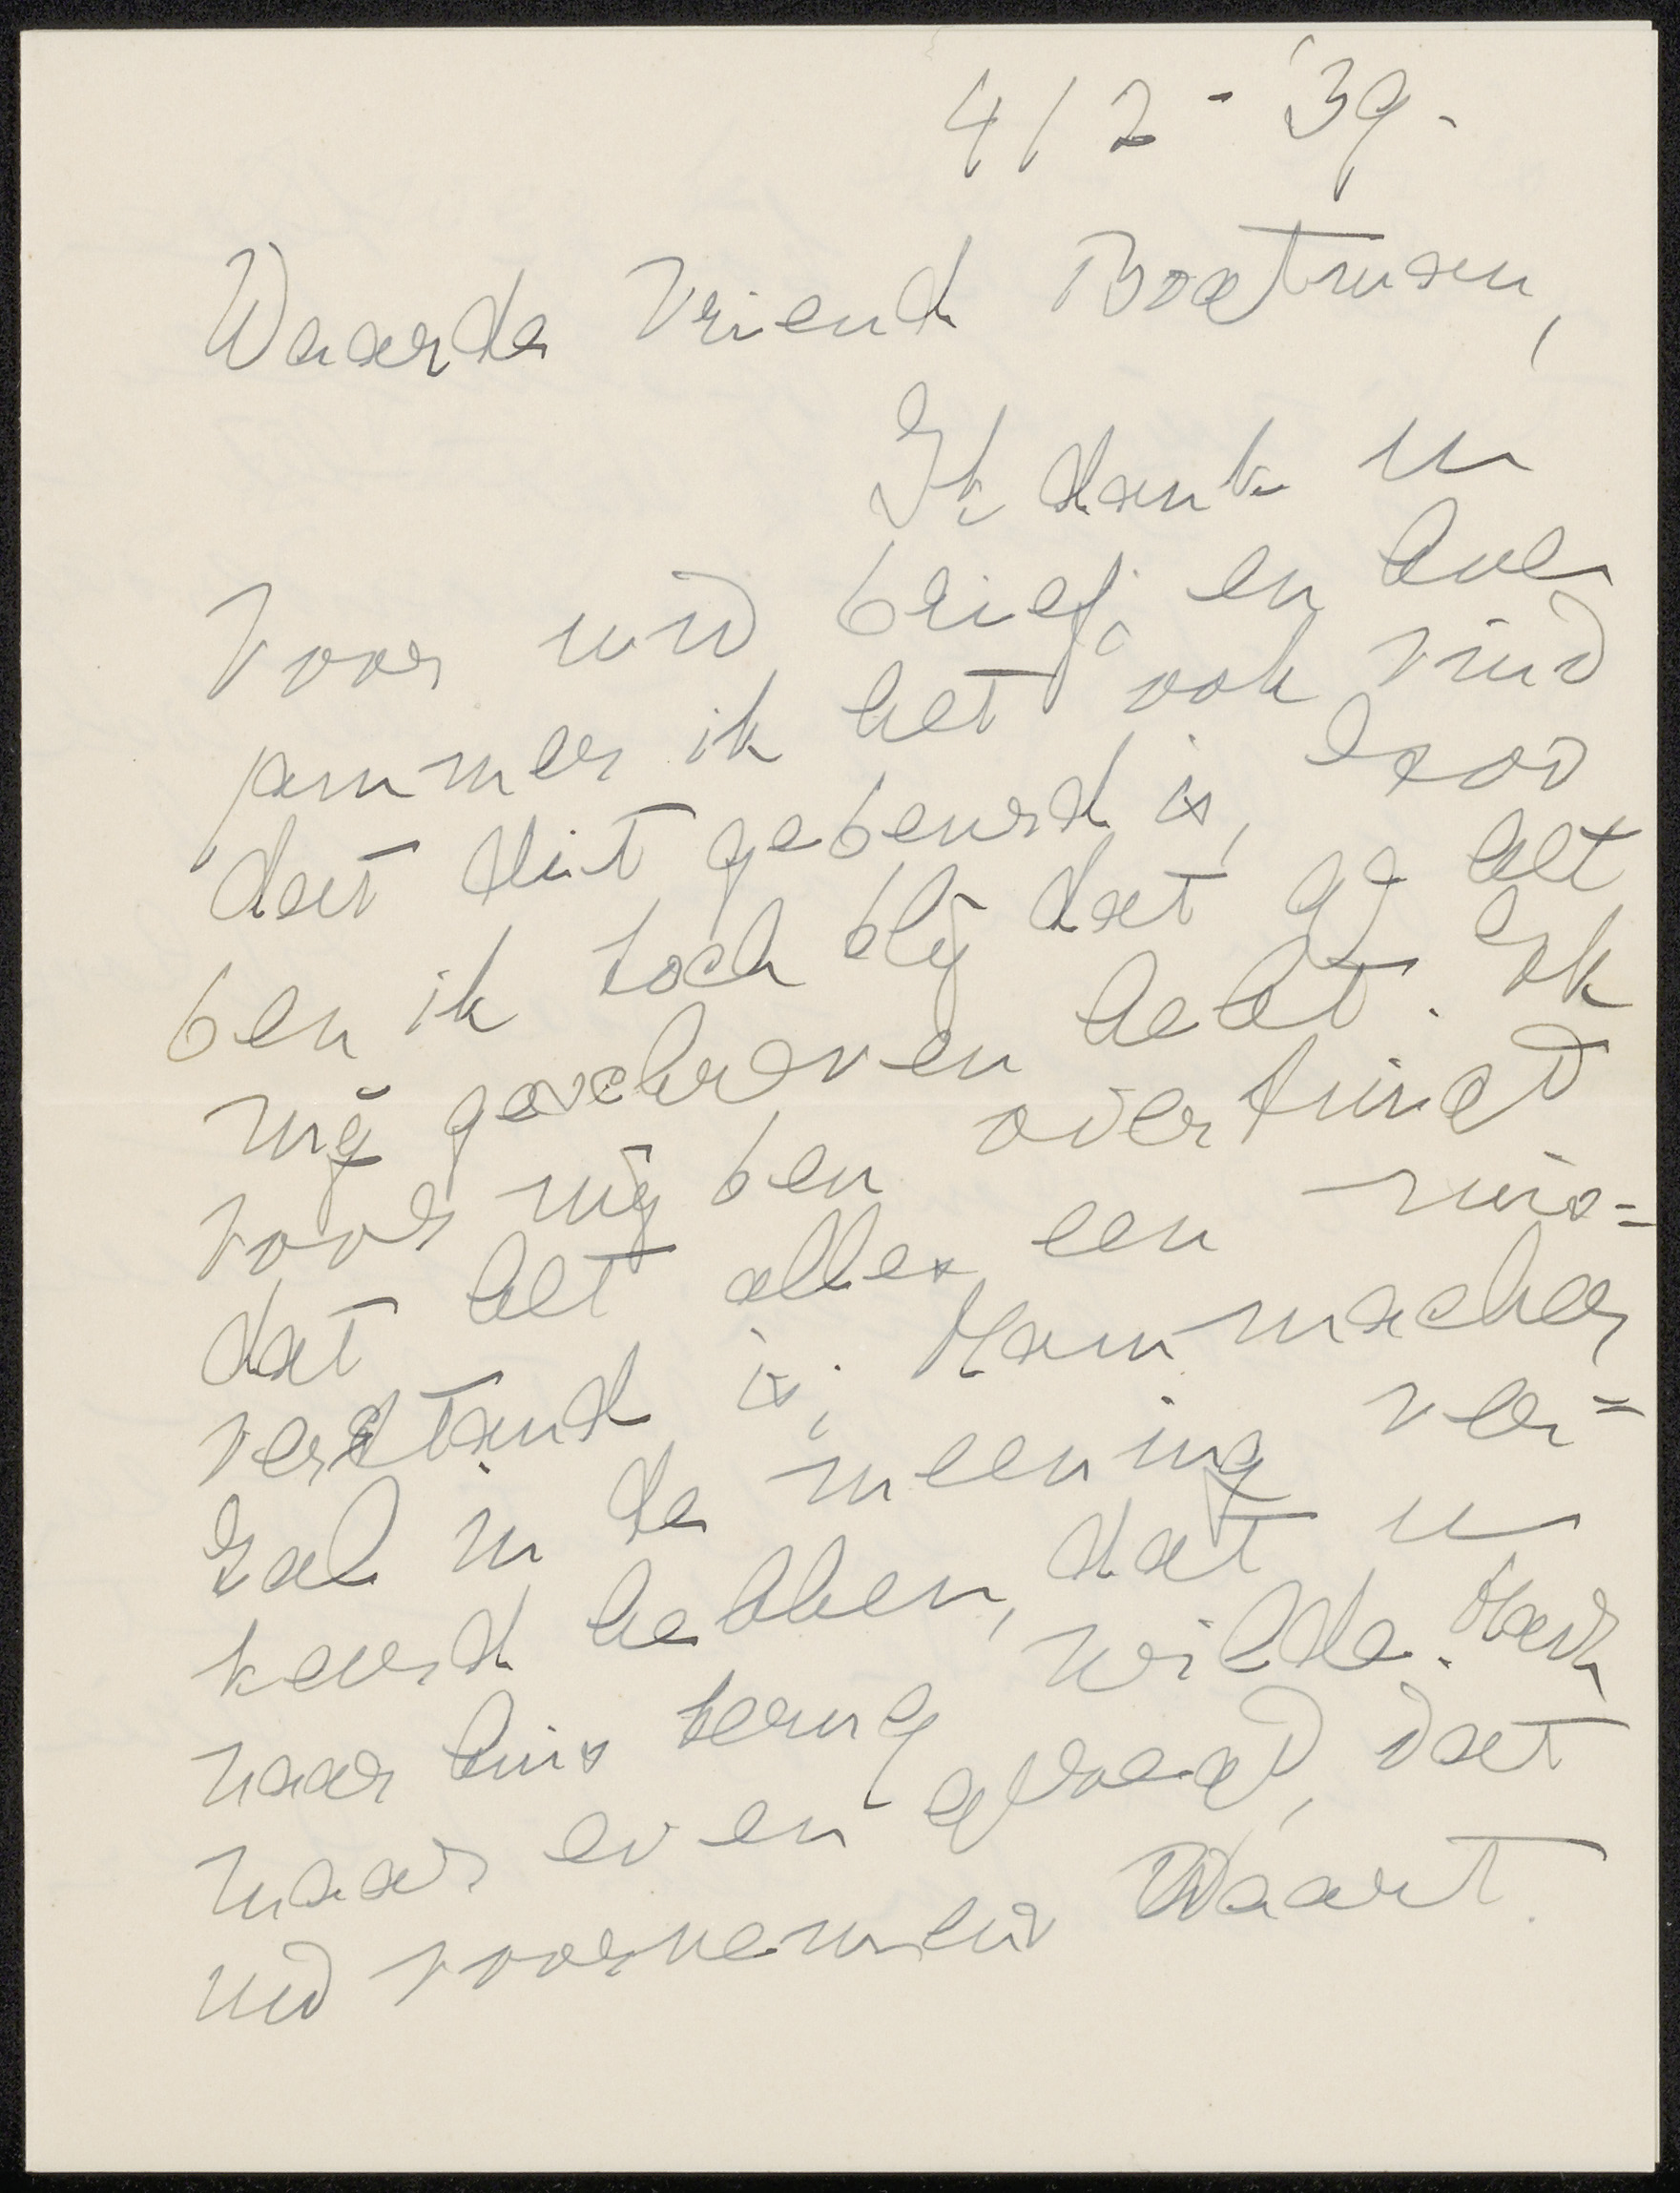 4/2-'39.
Waarde Vriend Boetrusen,
Ik dank u
voor uw brief, en hoe
jammer ik het ook vind
dat dit gebeurd is,
ben ik toch blij dat ge het
mij geschreven hebt. Ik
voor mij ben overtuigd
dat het alles een mis=
verstand is. Hammacher
zal in de meening ver=
keerd hebben, dat u
naar huis terug wilde.
naar even gevraagd, dat
uw voornemen waart.